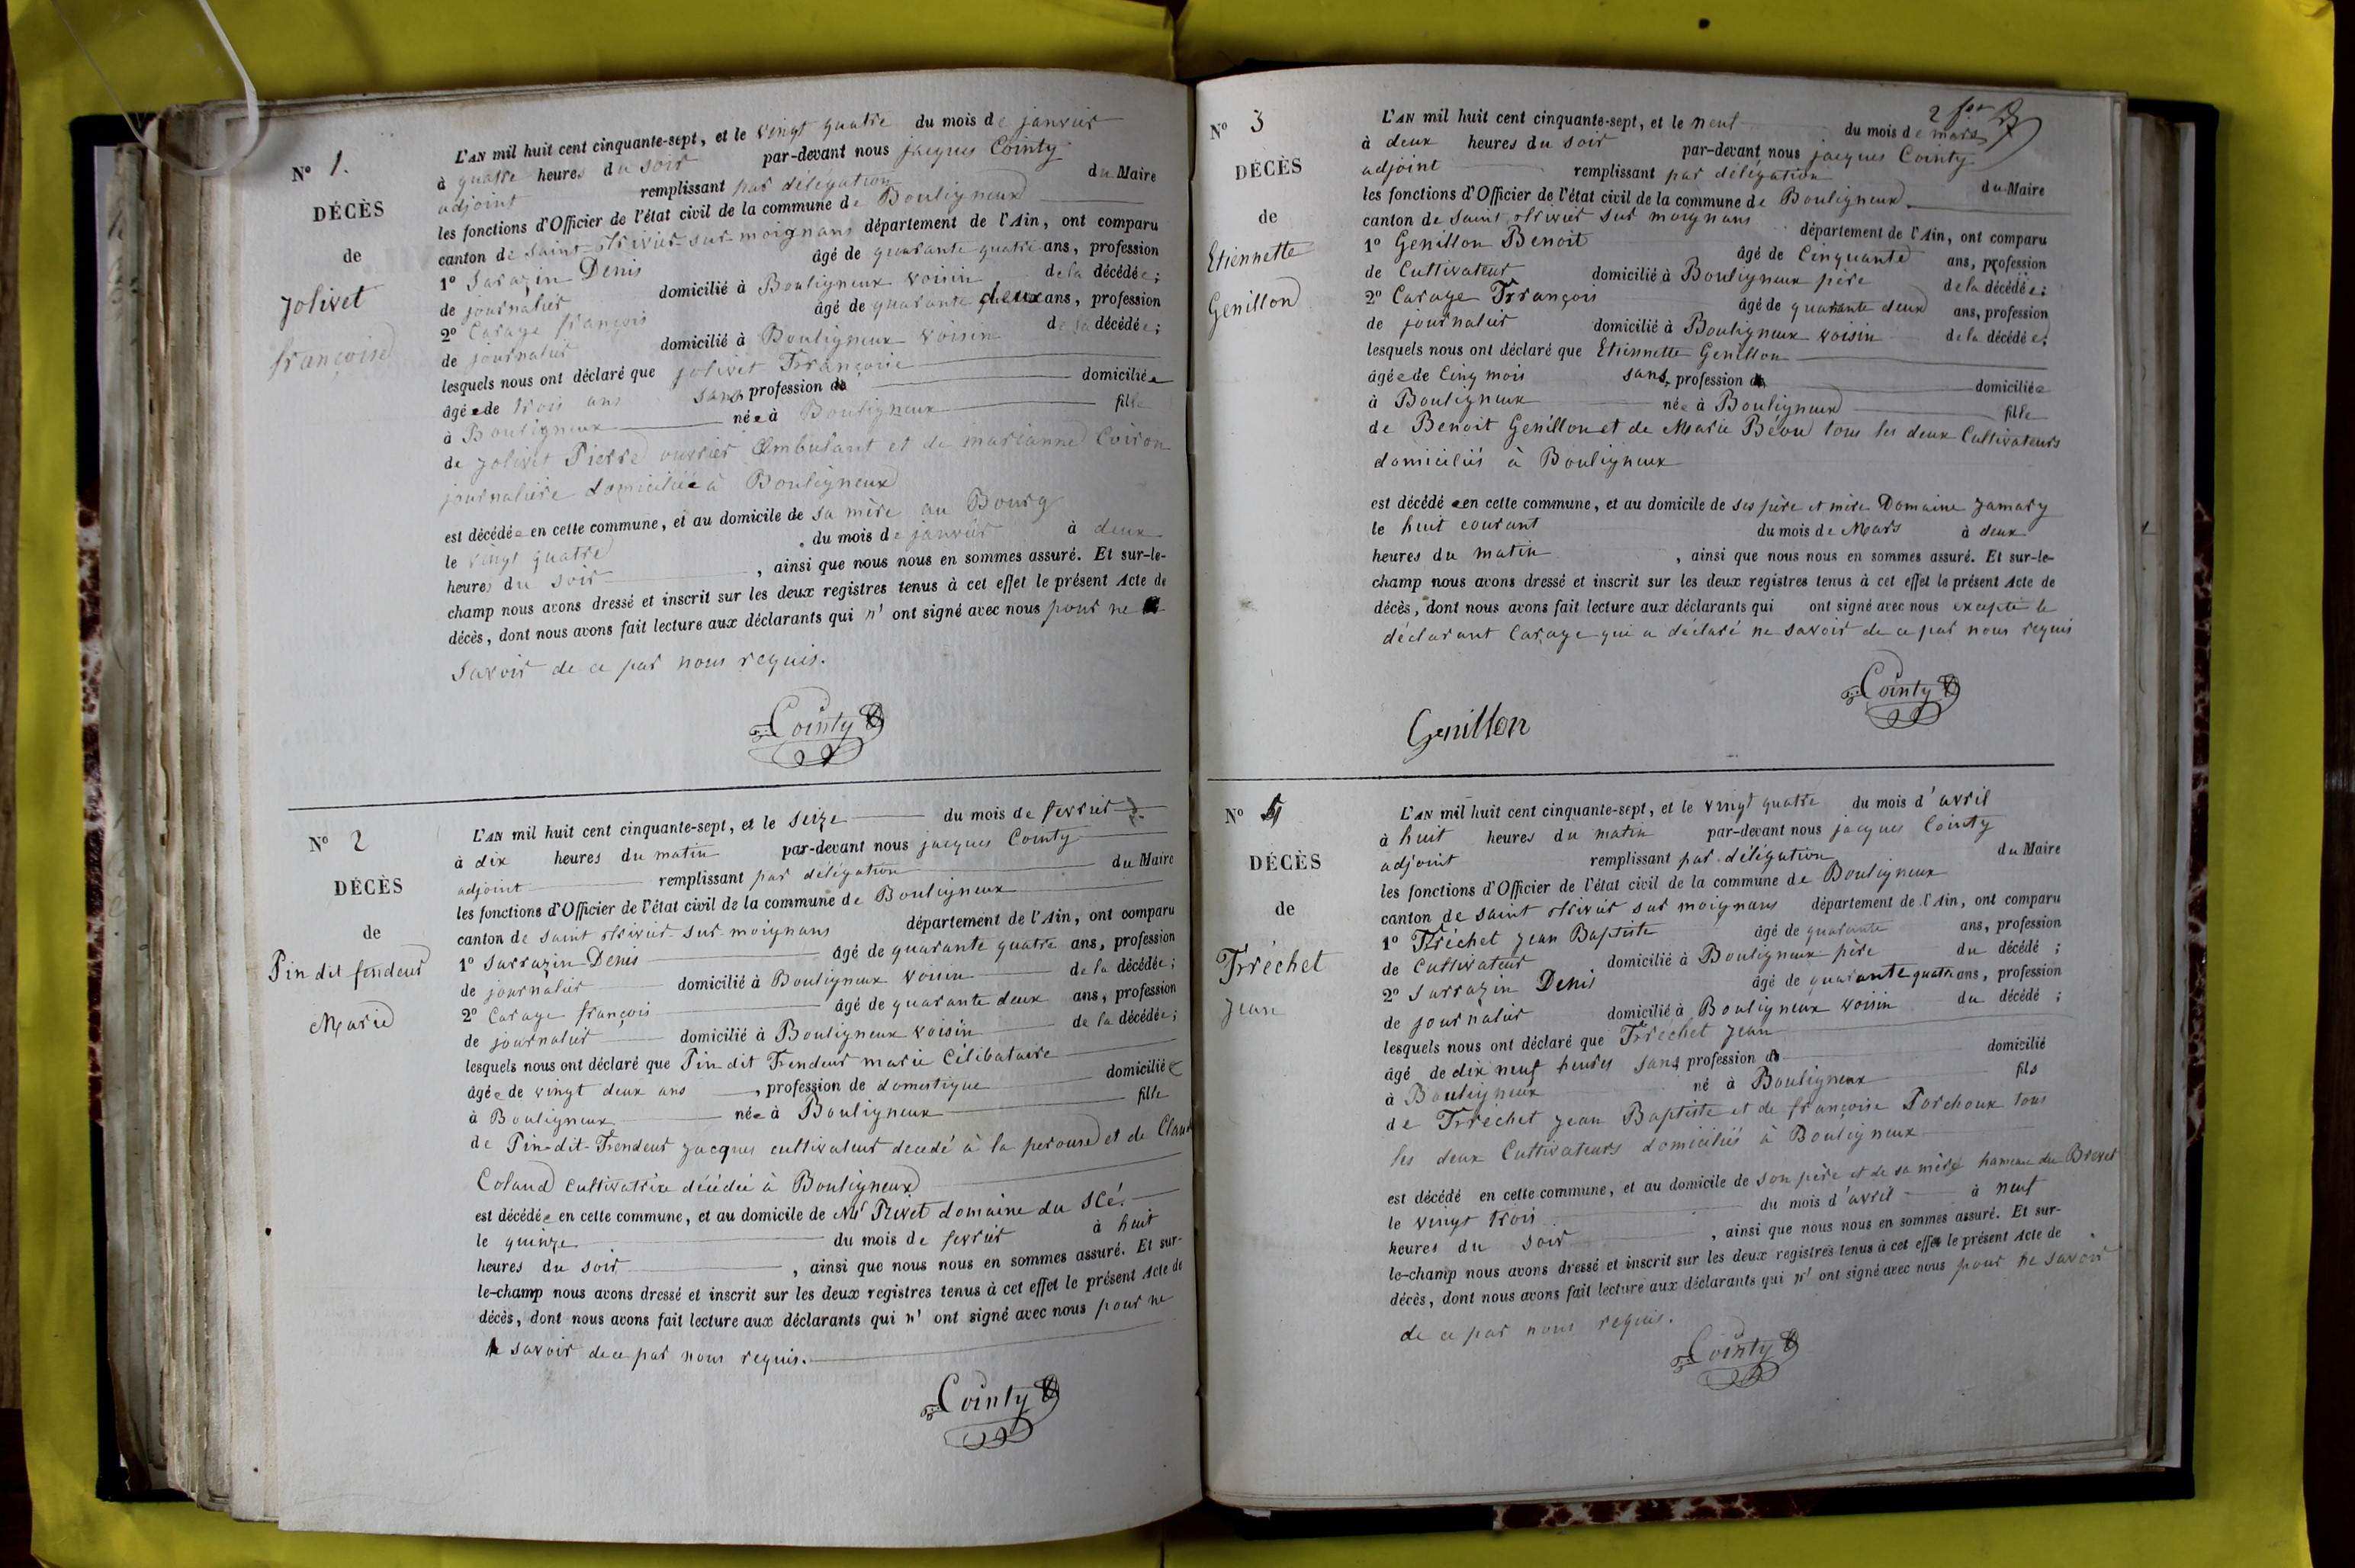 N° 1.
DÉCÈS
de
jolivet
françoise
L'AN mil huit cent cinquante-sept, et le vingt quatre du mois de janvier
à quatre heures du soir par-devant nous jacques Cointy
adjoint remplissant par délégation du Maire
les fonctions d'Officier de l'état civil de la commune de Bouligneux
canton de saint trivier sur moignans département de l'Ain, ont comparu
1° Sarazin Denis âgé de quarante quatre ans, profession
de journalier domicilié à Bouligneux voisin de la décédée;
2° Carage françois âgé de quarante deux ans, profession
de journalier domicilié à Bouligneux voisin de la décédée;
lesquels nous ont déclaré que jolivet Françoise
âgée de trois ans sans profession domiciliée
à Bouligneux née à Bouligneux fille
de jolivet Pierre ouvrier ambulant et de marianne Coiron
journalière domiciliée à Bouligneux
est décédée en cette commune, et au domicile de sa mère au Bourg
le vingt quatre du mois de janvier à deux
heures du soir, ainsi que nous nous en sommes assuré. Et sur-le-
champ nous avons dressé et inscrit sur les deux registres tenus à cet effet le présent Acte de
décès, dont nous avons fait lecture aux déclarants qui n' ont signé avec nous pour ne
savoir de ce par nous requis.
Cointy
N° 2
DÉCÈS
de
Pin dit fendeur
Marie
L'AN mil huit cent cinquante-sept, et le seize du mois de fevrier
à dix heures du matin par-devant nous jacques Cointy
adjoint remplissant par délégation du Maire
les fonctions d'Officier de l'état civil de la commune de Bouligneux
canton de saint trivier sur moignans département de l'Ain, ont comparu
1° Sarrazin Denis âgé de quarante quatre ans, profession
de journalier domicilié à Bouligneux voisin de la décédée;
2° Carage françois âgé de quarante deux ans, profession
de journalier domicilié à Bouligneux voisin de la décédée;
lesquels nous ont déclaré que Pin dit Fendeur marie Célibataire
âgée de vingt deux ans, profession de domestique domiciliée
à Bouligneux née à Bouligneux fille
de Pin-dit-Fendeur jacques cultivateur decedé à la perouse et de
Coland cultivatrice décédée à Bouligneux
est décédée en cette commune, et au domicile de Privet domaine du
le quinze du mois de fevrier à huit
heures du soir, ainsi que nous nous en sommes assuré. Et sur-
le-champ nous avons dressé et inscrit sur les deux registres tenus à cet effet le présent Acte de
décès, dont nous avons fait lecture aux déclarants qui n' ont signé avec nous pour ne
le savoir de ce par nous requis.
Cointy
N° 3
DÉCÈS
de
Etiennette
Genillon
L'AN mil huit cent cinquante-sept, et le neuf du mois de mars
à deux heures du soir par-devant nous jacques Cointy
adjoint remplissant par délégation du Maire
les fonctions d'Officier de l'état civil de la commune de Bouligneux
canton de saint trivier sur moignans département de l'Ain, ont comparu
1° Genillon Benoit âgé de Cinquante ans, profession
de Cultivateur domicilié à Bouligneux père de la décédée;
2° Carage François âgé de quarante deux ans, profession
de journalier domicilié à Bouligneux voisin de la décédée;
lesquels nous ont déclaré que Etiennette Genillon
âgée de Cinq mois sans profession domiciliée
à Bouligneux née à Bouligneux fille
de Benoit Genillon et de Marie Béou tous les deux Cultivateurs
domiciliés à Bouligneux
est décédée en cette commune, et au domicile de ses père et mère Domaine jamary
le huit courant du mois de Mars à deux
heures du matin, ainsi que nous nous en sommes assuré. Et sur-le-
champ nous avons dressé et inscrit sur les deux registres tenus à cet effet le présent Acte de
décès, dont nous avons fait lecture aux déclarants qui ont signé avec nous excepté le
déclarant Carage qui a déclaré ne savoir de ce par nous requis
Cointy
Genillon
N° 4
DÉCÈS
de
Fréchet
jean
L'AN mil huit cent cinquante-sept, et le vingt quatre du mois d'avril
à huit heures du matin par-devant nous jacques Cointy
adjoint remplissant par délégation du Maire
les fonctions d'Officier de l'état civil de la commune de Bouligneux
canton de saint trivier sur moignans département de l'Ain, ont comparu
1° Fréchet jean Baptiste âgé de quarante ans, profession
de Cultivateur domicilié à Bouligneux père du décédé;
2° Sarrazin Denis âgé de quarante quatre ans, profession
de journalier domicilié à Bouligneux voisin du décédé;
lesquels nous ont déclaré que Frechet jean
âgé de dix neuf heures sans profession domicilié
à Bouligneux né à Bouligneux fils
de Fréchet jean Baptiste et de françoise Porchoux tous
les deux Cultivateurs domiciliés à Bouligneux
est décédé en cette commune, et au domicile de son père et de sa mère hameau du Brevet
le vingt trois du mois d'avril à neuf
heures du soir, ainsi que nous nous en sommes assuré. Et sur-
le-champ nous avons dressé et inscrit sur les deux registres tenus à cet effet le présent Acte de
décès, dont nous avons fait lecture aux déclarants qui n' ont signé avec nous pour ne savoir
de ce par nous requis.
Cointy